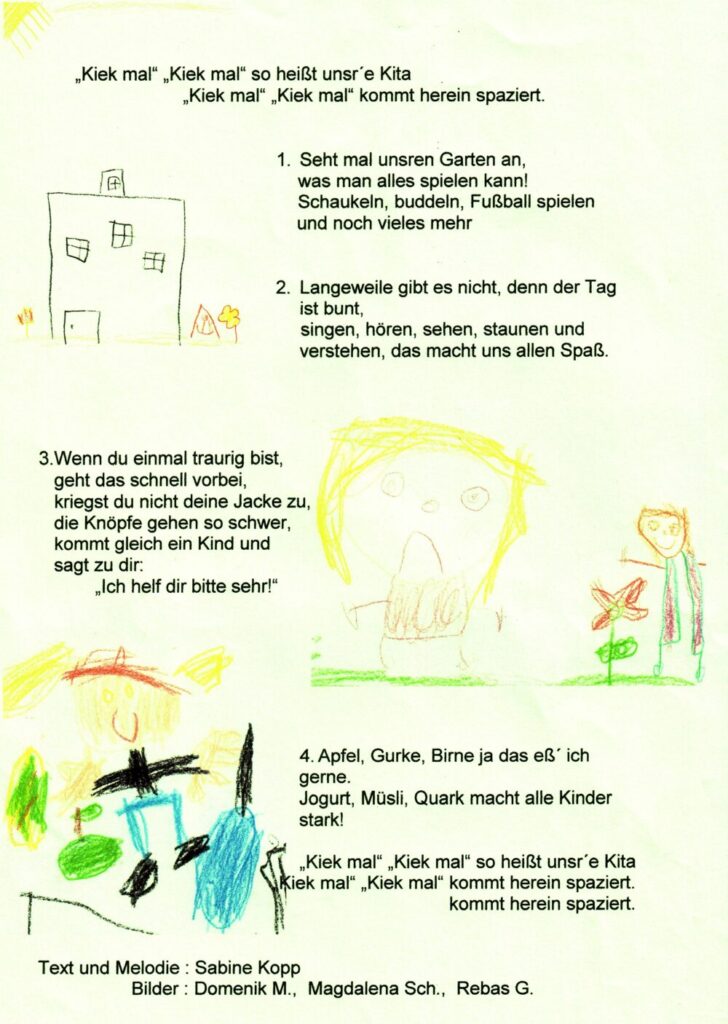 „Kiek mal“ „Kiek mal“ so heißt unsr´e Kita
„Kiek mal“ „Kiek mal“ kommt herein spaziert.
1. Seht mal unsren Garten an,
was man alles spielen kann!
Schaukeln, buddeln, Fußball spielen
und noch vieles mehr
2. Langeweile gibt es nicht, denn der Tag
ist bunt,
singen, hören, sehen, staunen und
verstehen, das macht uns allen Spaß.
3.Wenn du einmal traurig bist,
geht das schnell vorbei,
kriegst du nicht deine Jacke zu,
die Knöpfe gehen so schwer,
kommt gleich ein Kind und
sagt zu dir:
„Ich helf dir bitte sehr!“
4. Apfel, Gurke, Birne ja das eß´ ich
gerne.
Jogurt, Müsli, Quark macht alle Kinder
stark!
„Kiek mal“ „Kiek mal“ so heißt unsr´e Kita
Kiek mal“ „Kiek mal“ kommt herein spaziert.
kommt herein spaziert.
Text und Melodie : Sabine Kopp
Bilder : Domenik M., Magdalena Sch., Rebas G.